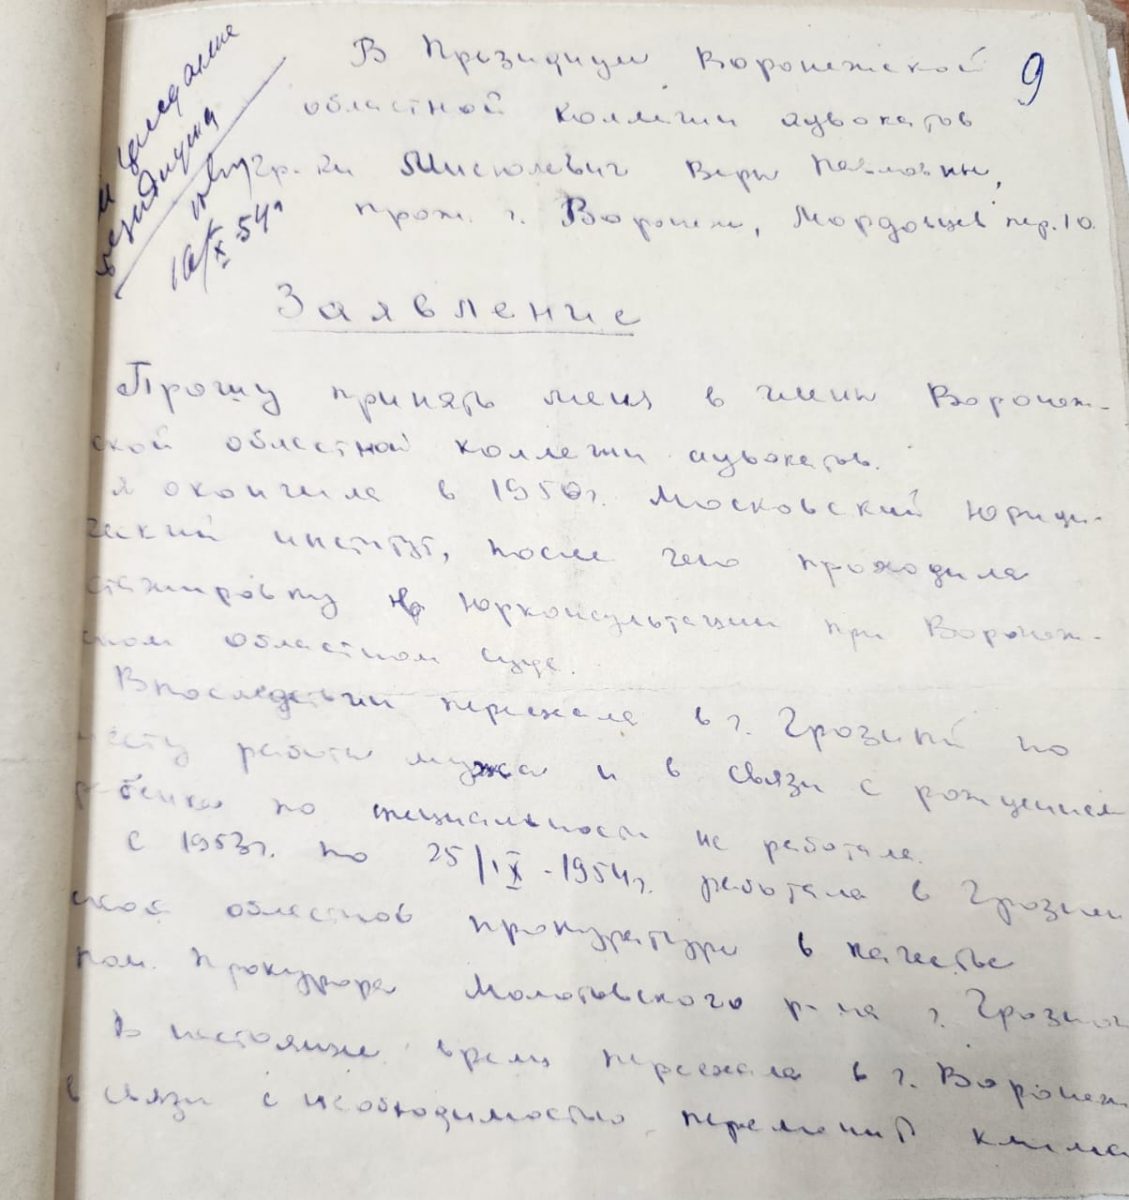 9
В Президиум Воронежской
областной коллегии адвокатов
гр-ки Мисюлевич Веры Павловны,
прож. г. Воронеж, Мордовцев пер. 10.
заседание
президиума
16/X-54г
Заявление
Прошу принять меня в члены Воронеж-
ской областной коллегии адвокатов.
Я окончила в 1950г. Московский юриди-
ческий институт, после чего проходила
стажировку в юрконсультации при Воронеж-
ском областном суде.
Впоследствии переехала в г. Грозный по
месту работы мужа и в связи с рождением
ребенка по специальности не работала.
С 1953г. по 25/IX-1954г. работала в Грознен
ской областной прокуратуре в качестве
пом. Прокурора Молотовского р-на г. Грозного
В настоящее время переехала в г. Воронеж
в связи с необходимостью переменить клима